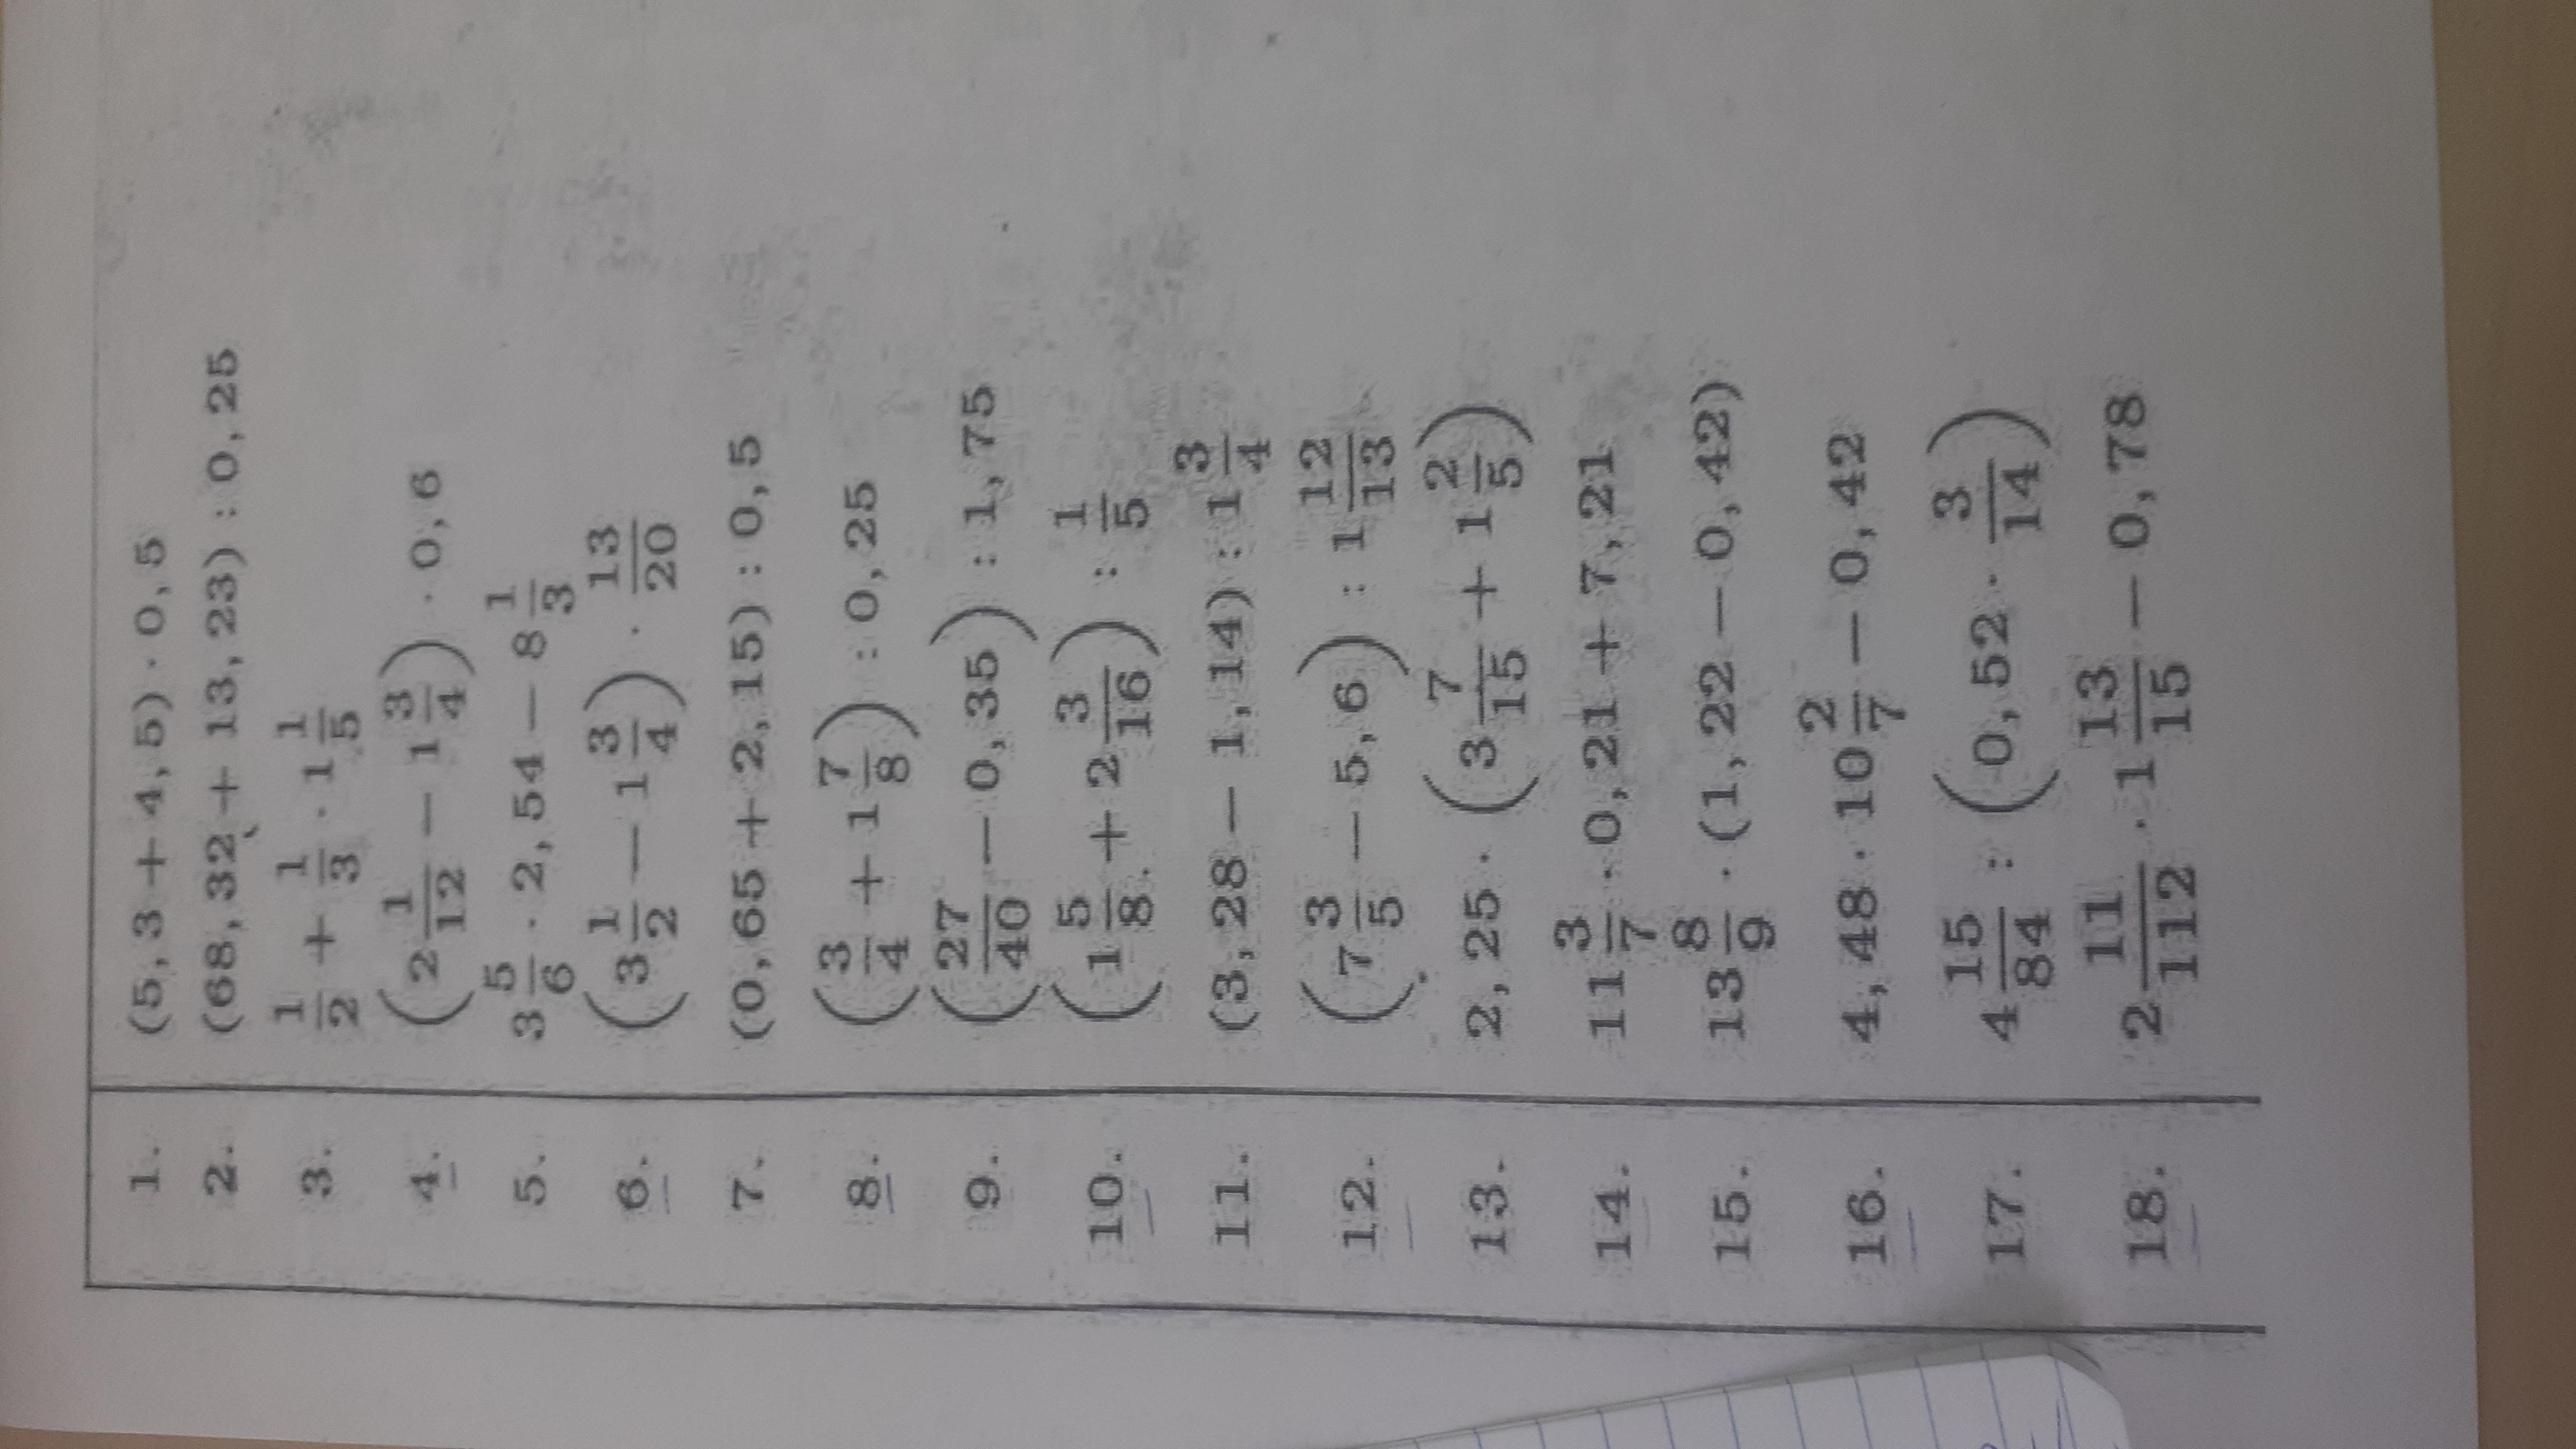 1. (5,3 + 4,5) · 0,5
2. (68,32 + 13,23) : 0,25
3. 1/2 + 1/3 · 1 1/5
4. (2 1/12 − 1 3/4) · 0,6
5. 3 5/6 · 2,54 − 8 1/3
6. (3 1/2 − 1 3/4) · 13/20
7. (0,65 + 2,15) : 0,5
8. (3/4 + 1 7/8) : 0,25
9. (27/40 − 0,35) : 1,75
10. (1 5/8 + 2 3/16) : 1/5
11. (3,28 − 1,14) : 1 3/4
12. (7 3/5 − 5,6) : 1 12/13
13. 2,25 · (3 7/15 + 1 2/5)
14. 11 3/7 · 0,21 + 7,21
15. 13 8/9 · (1,22 − 0,42)
16. 4,48 · 10 2/7 − 0,42
17. 4 15/84 : (0,52 · 3/14)
18. 2 11/112 · 1 13/15 − 0,78